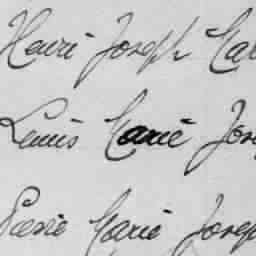 Henri Joseph Mar
Louis Marie Jose
Pierre Marie Joseph